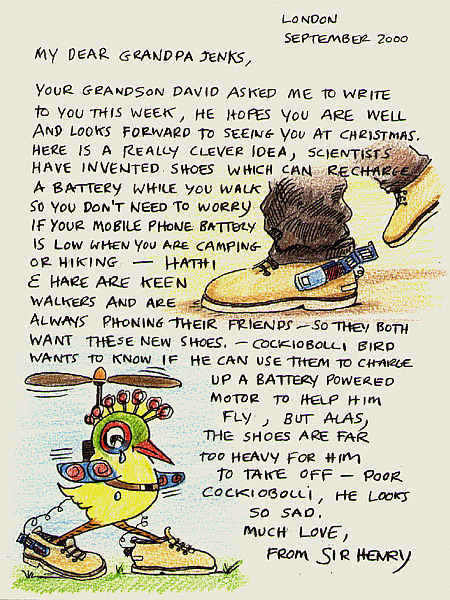 LONDON
SEPTEMBER 2000
MY DEAR GRANDPA JENKS,
YOUR GRANDSON DAVID ASKED ME TO WRITE
TO YOU THIS WEEK, HE HOPES YOU ARE WELL
AND LOOKS FORWARD TO SEEING YOU AT CHRISTMAS.
HERE IS A REALLY CLEVER IDEA, SCIENTISTS
HAVE INVENTED SHOES WHICH CAN RECHARGE
A BATTERY WHILE YOU WALK
SO YOU DON'T NEED TO WORRY
IF YOUR MOBILE PHONE BATTERY
IS LOW WHEN YOU ARE CAMPING
OR HIKING — HATHI
& HARE ARE KEEN
WALKERS AND ARE
ALWAYS PHONING THEIR FRIENDS — SO THEY BOTH
WANT THESE NEW SHOES. — COCKIOBOLLI BIRD
WANTS TO KNOW IF HE CAN USE THEM TO CHARGE
UP A BATTERY POWERED
MOTOR TO HELP HIM
FLY, BUT ALAS,
THE SHOES ARE FAR
TOO HEAVY FOR HIM
TO TAKE OFF — POOR
COCKIOBOLLI, HE LOOKS
SO SAD.
MUCH LOVE,
FROM SIR HENRY